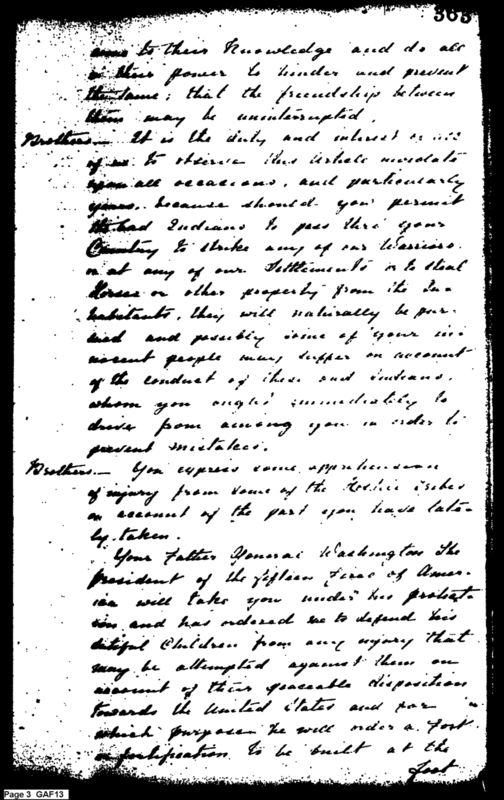 363
come to their Knowledge and do all
in their power to hinder and prevent
the same; that the friendship between
them may be uninterrupted.
Brothers — It is the duty and interest of all
of us to observe this Article
upon all occasions, and particularly
yours, because should you permit
the bad Indians to pass thro' your
Country to strike any of our Warriors
or at any of our Settlements or to steal
Horses or other property from its In-
habitants, they will naturally be pur-
sued and possibly some of your in-
nocent people may suffer on account
of the conduct of these bad Indians,
whom you ought immediately to
drive from among you in order to
prevent mistakes.
Brothers — You express some apprehension
of injury from some of the Hostile tribes
on account of the part you have late-
ly taken.
Your Father General Washington the
President of the fifteen Fires of Amer-
ica will take you under his protect-
ion and has ordered me to defend his
dutiful Children from any injury that
may be attempted against them on
account of their peaceable disposition
towards the United States and for
which purpose he will order a Fort
or fortification to be built at the
foot
Page 3 GAF13